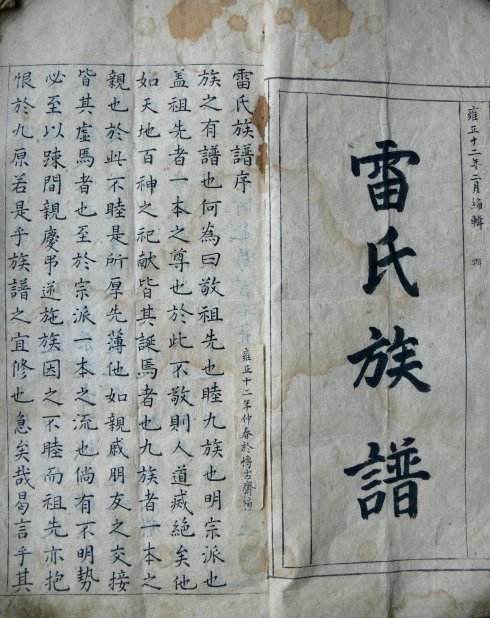 雍正十二年二月編輯
雷氏族譜
雷氏族譜序
雍正十二年仲春於博古齋
族之有譜也何為曰敬祖先也睦九族也明宗派也
盖祖先者一本之尊也於此不敬則人道烕絕矣他
如天地百神之祀献皆其誕馬者也九族者一本之
親也於此不睦是所厚先薄他如親戚朋友之交接
皆其虛馬者也至於宗派一本之流也倘有不明勢
必至以踈間親慶弔逆施族因之不睦而祖先亦抱
恨於九原若是乎族譜之宜修也急矣哉曷言乎其